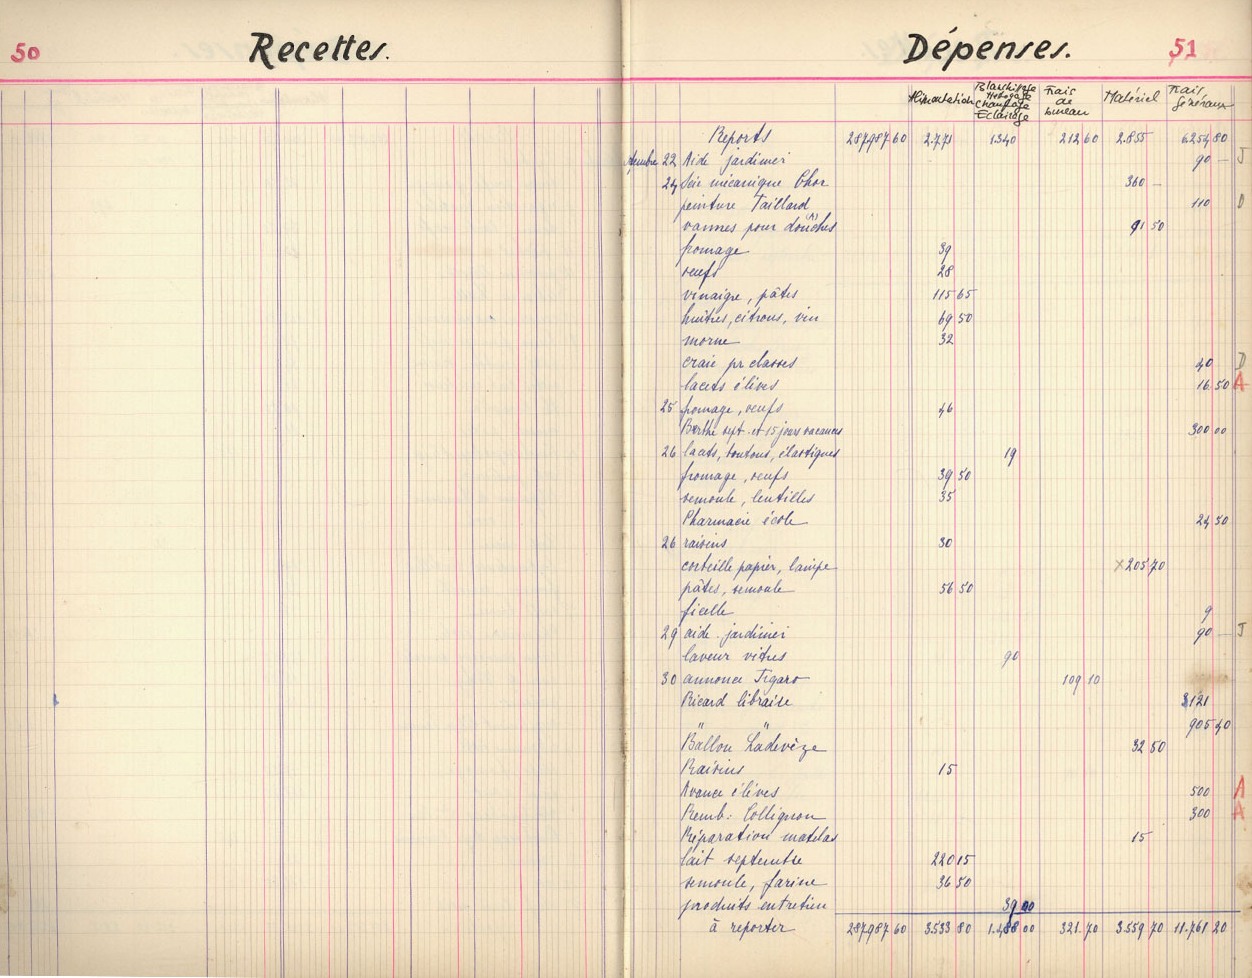 50 Recettes.
Dépenses. 51
Alimentation Blanchissage Chauffage Eclairage Frais de bureau Matériel Frais Généraux
Reports 287987 60 2.771 1.340 212 60 2.855 6.254 80
22 Aide jardinier 90 — J
24 Scie mécanique Chor 360 —
peinture Taillard 110 D
vannes pour douches (A) 91 50
fromage 39
oeufs 28
vinaigre, pâtes 115 65
huîtres, citrons, vin 69 50
morue 32
craie pr classes 40 D
lacets élèves 16 50 A
25 fromage, oeufs 46
Berthe sept. et 15 jours vacances 300 00
26 lacets, boutons, élastiques 19
fromage, oeufs 39 50
semoule, lentilles 35
Pharmacie école 24 50
26 raisins 30
corbeille papier, lampe x 205 70
pâtes, semoule 56 50
ficelle 9
29 aide-jardinier 90 — J
laveur vitres 90
30 annonce Figaro 109 10
Ricard libraire 3121
" " 905 40
Ballon Ladevèze 32 50
Raisins 15
Avance élèves 500 A
Remb: Collignon 300 A
Réparation matelas 15
lait septembre 220 15
semoule, farine 36 50
produits entretien 39 00
à reporter 287987 60 3.533 80 1.488 00 321.70 3.559 70 11.761 20